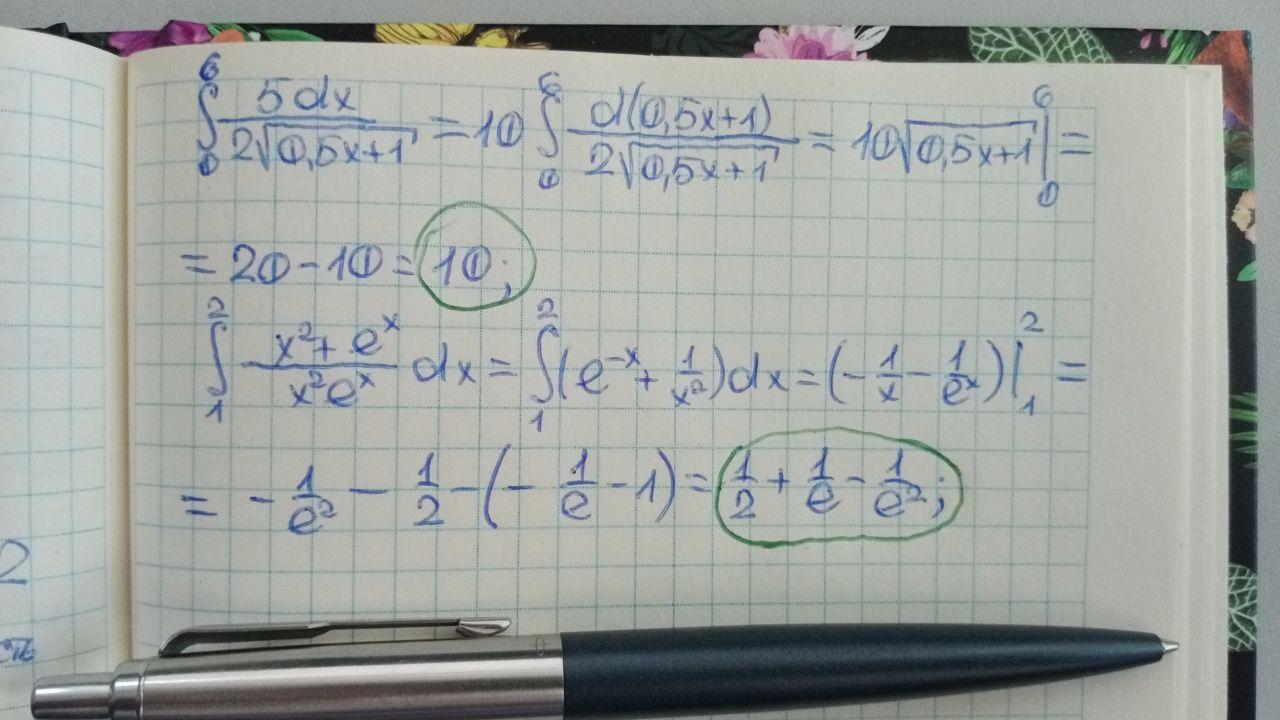 ∫₀⁶ 5dx/(2√(0,5x+1)) = 10 ∫₀⁶ d(0,5x+1)/(2√(0,5x+1)) = 10√(0,5x+1) |₀⁶ =
= 20 - 10 = 10;
∫₁² (x²+eˣ)/(x²eˣ) dx = ∫₁² (e⁻ˣ + 1/x²)dx = (-1/x - 1/eˣ)|₁² =
= -1/e² - 1/2 - (-1/e - 1) = 1/2 + 1/e - 1/e²;
2